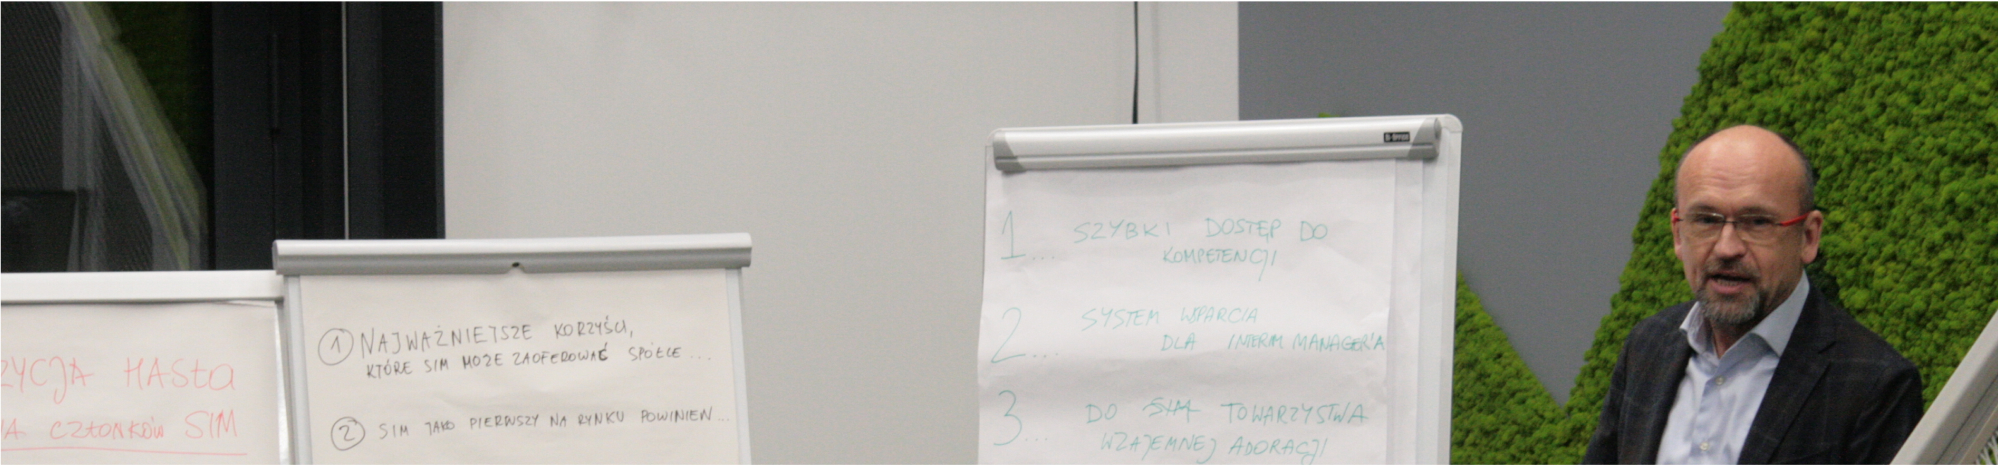 ZYCJA HASŁA
CZŁONKÓW SIM
1 NAJWAŻNIEJSZE KORZYŚCI,
KTÓRE SIM MOŻE ZAOFEROWAĆ SPÓŁCE ...
2 SIM JAKO PIERWSZY NA RYNKU POWINIEN ...
1... SZYBKI DOSTĘP DO
KOMPETENCJI
2... SYSTEM WSPARCIA
DLA INTERIM MANAGER'A
3... DO SIM TOWARZYSTWA
WZAJEMNEJ ADORACJI